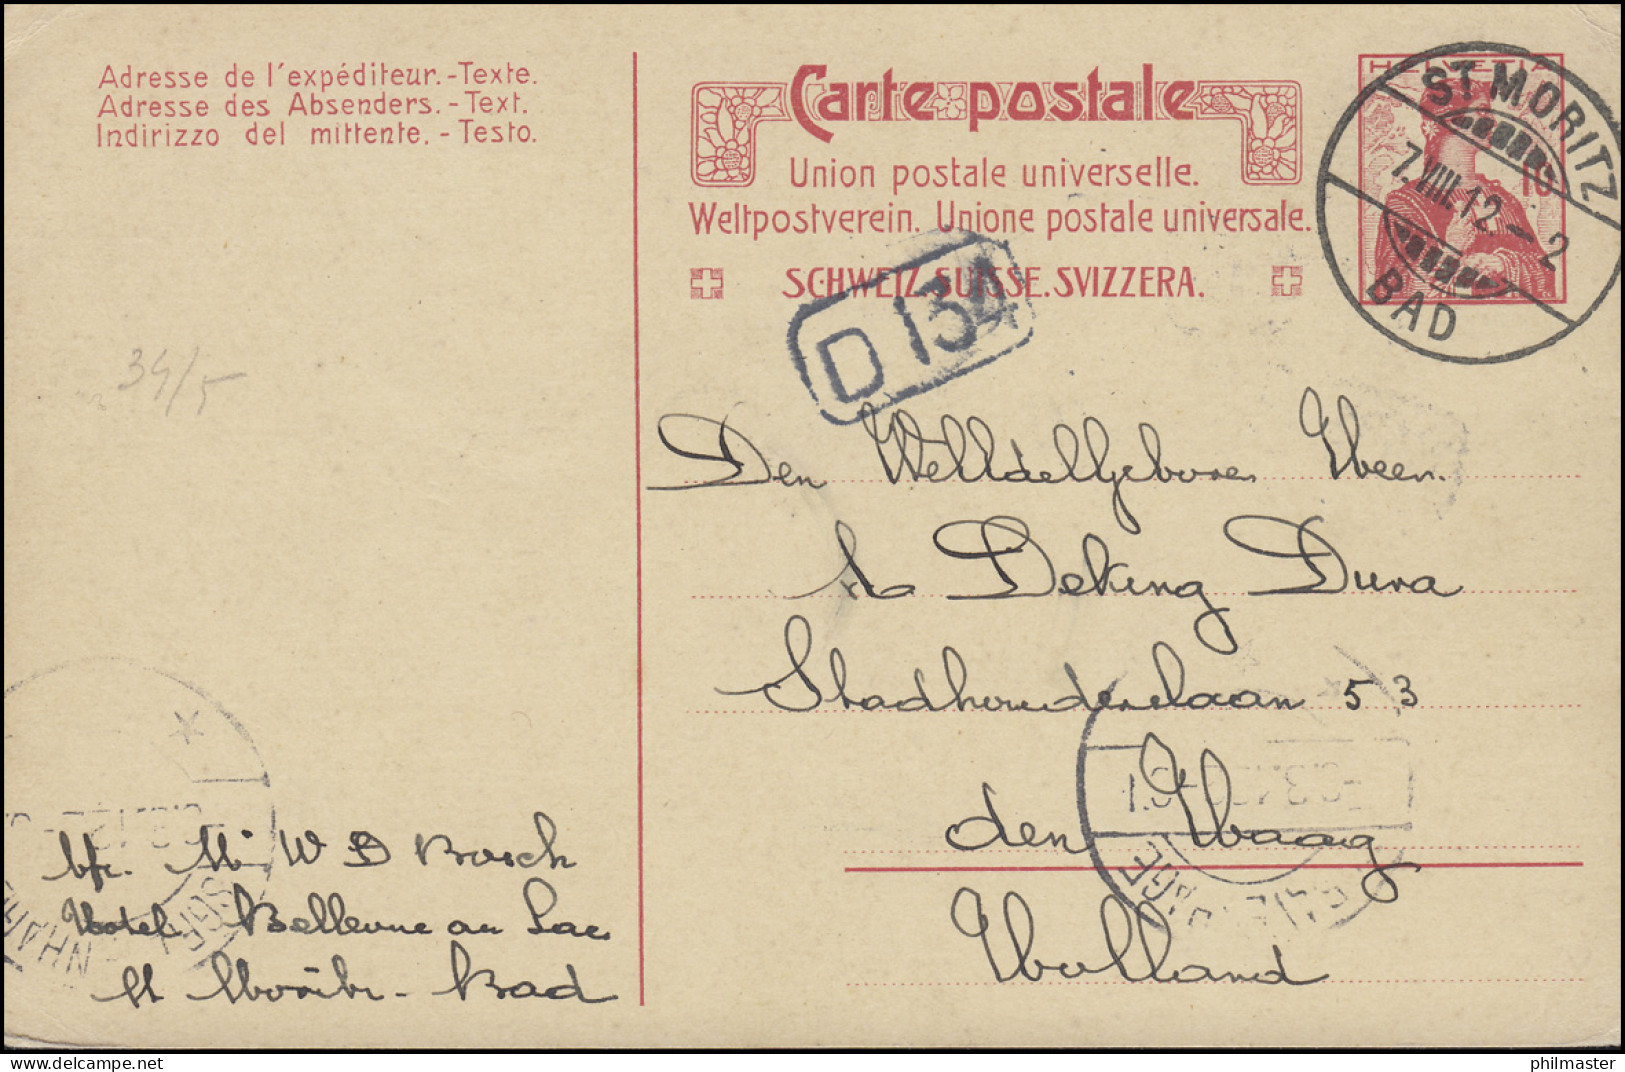 Adresse de l'expéditeur.-Texte.
Adresse des Absenders.-Text.
Indirizzo del mittente.-Testo.
Carte postale
Union postale universelle.
Weltpostverein. Unione postale universale.
SCHWEIZ.SUISSE.SVIZZERA.
HELVETIA
10
ST MORITZ
7.VIII.12.-2
BAD
D 134
34/5
Den WelEdelGeboren Heer.
Deking Dura
Stadhouderslaan 53
den Haag
Holland
afz. Mr W D Bosch
Hotel Bellevue au Lac
St Moritz-Bad
philmaster